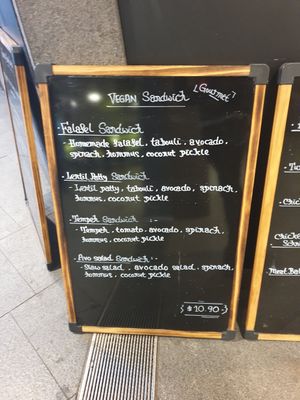 VEGAN Sandwich
(Gourmet)
- Falafel Sandwich
- Homemade falafel, tabouli, avocado,
spinach, hummus, coconut pickle
- Lentil Patty Sandwich
- Lentil patty, tabouli, avocado, spinach,
hummus, coconut pickle
- Tempeh Sandwich :-
- Tempeh, tomato, avocado, spinach,
hummus, coconut pickle
- Avo salad Sandwich :-
- Slaw salad, avocado salad, spinach,
hummus, coconut pickle
$10.90
- Chic
Chicke
Schn
Meat Bal